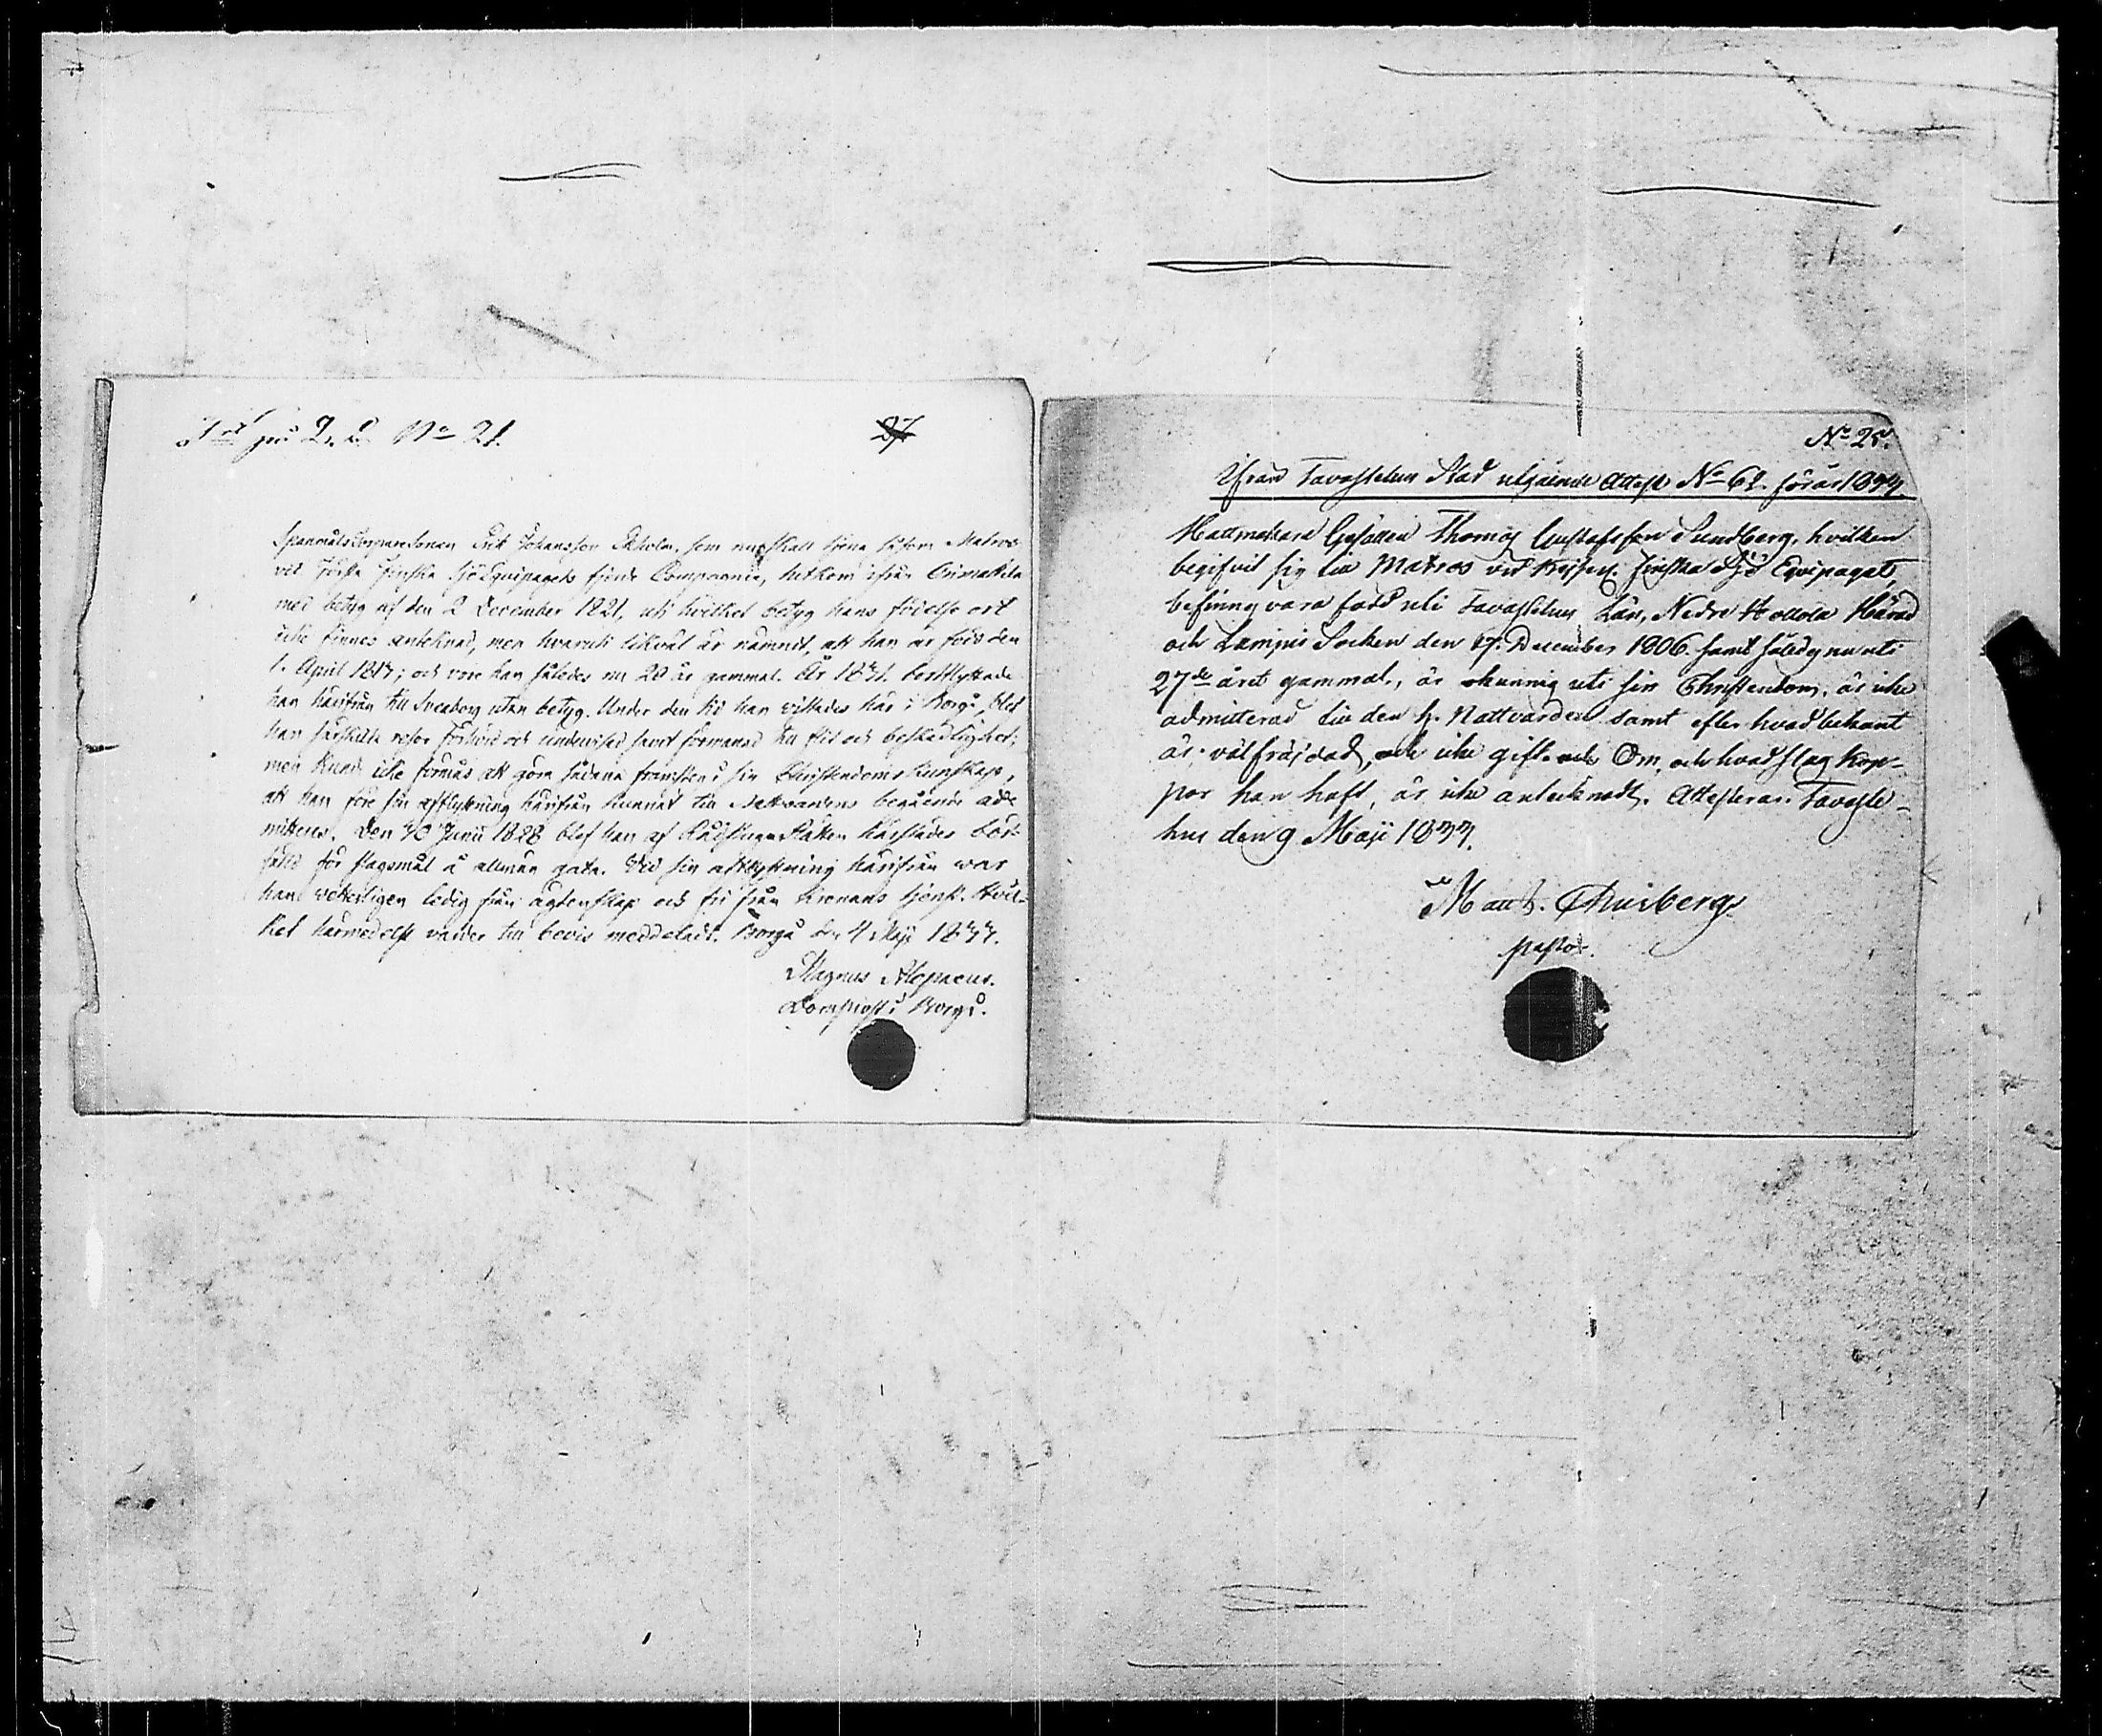 No 21.
27
Erik Johansson Ekholm, som nu skall tjena såsom Matros
vid Första Finska Sjö Equipagets fjerde Compagnie, hitkom ifrån Orimattila
med betyg af den 2 December 1821, uti hvilket betyg hans födelse ort
icke finnes antecknad, men hvaruti likväl är nämndt, att han är född den
1. April 1813; och vore han således nu 20 år gammal. År 1831 bortflyttade
han härifrån till Sveaborg utan betyg. Under den tid han vistades här i Borgå, blef
han särskilte resor förhörd och undervised samt förmanad till flit och beskedlighet;
men kunde icke förmås att göra sådana framsteg i sin Christendoms kunskap,
att han före sin afflyttning härifrån kunnat till Nattvardens begående ad-
mitteras. Den 30 Junii 1828 blef han af Rådstugu Rätten härstädes böt-
fäld för slagsmål å allmän gata. Vid sin afflyttning härifrån war
han veterligen ledig från ägtenskap och fri från kronans tjenst. Hvil-
ket härmedelst varder till bevis meddeladt. Borgå d. 4 Maji 1833.
Magnus Alopaeus.
Domprost i Borgå.
No 25.
Ifrån Tavastehus Stad utgående Attest No 62. för år 1833.
Hattmakare Gesällen Thomas Gustafsson Sundberg, hvilken
begifvit sig till Matros vid Kejserl. Finska Sjö Equipaget,
befinnes vara född uti Tavastehus Län, Nedre Hollola Härad
och Lampis Socken den 17. December 1806. samt således nu uti
27de året gammal, är okunnig uti sin Christendom, är icke
admitterad till den H. Nattvarden samt efter hvad bekant
är välfräjdad, och icke gift. och Om, och hvad slag Kop-
por han haft, är icke antecknadt. Attesterar. Tavaste-
hus den 9 Maji 1833.
pastor.